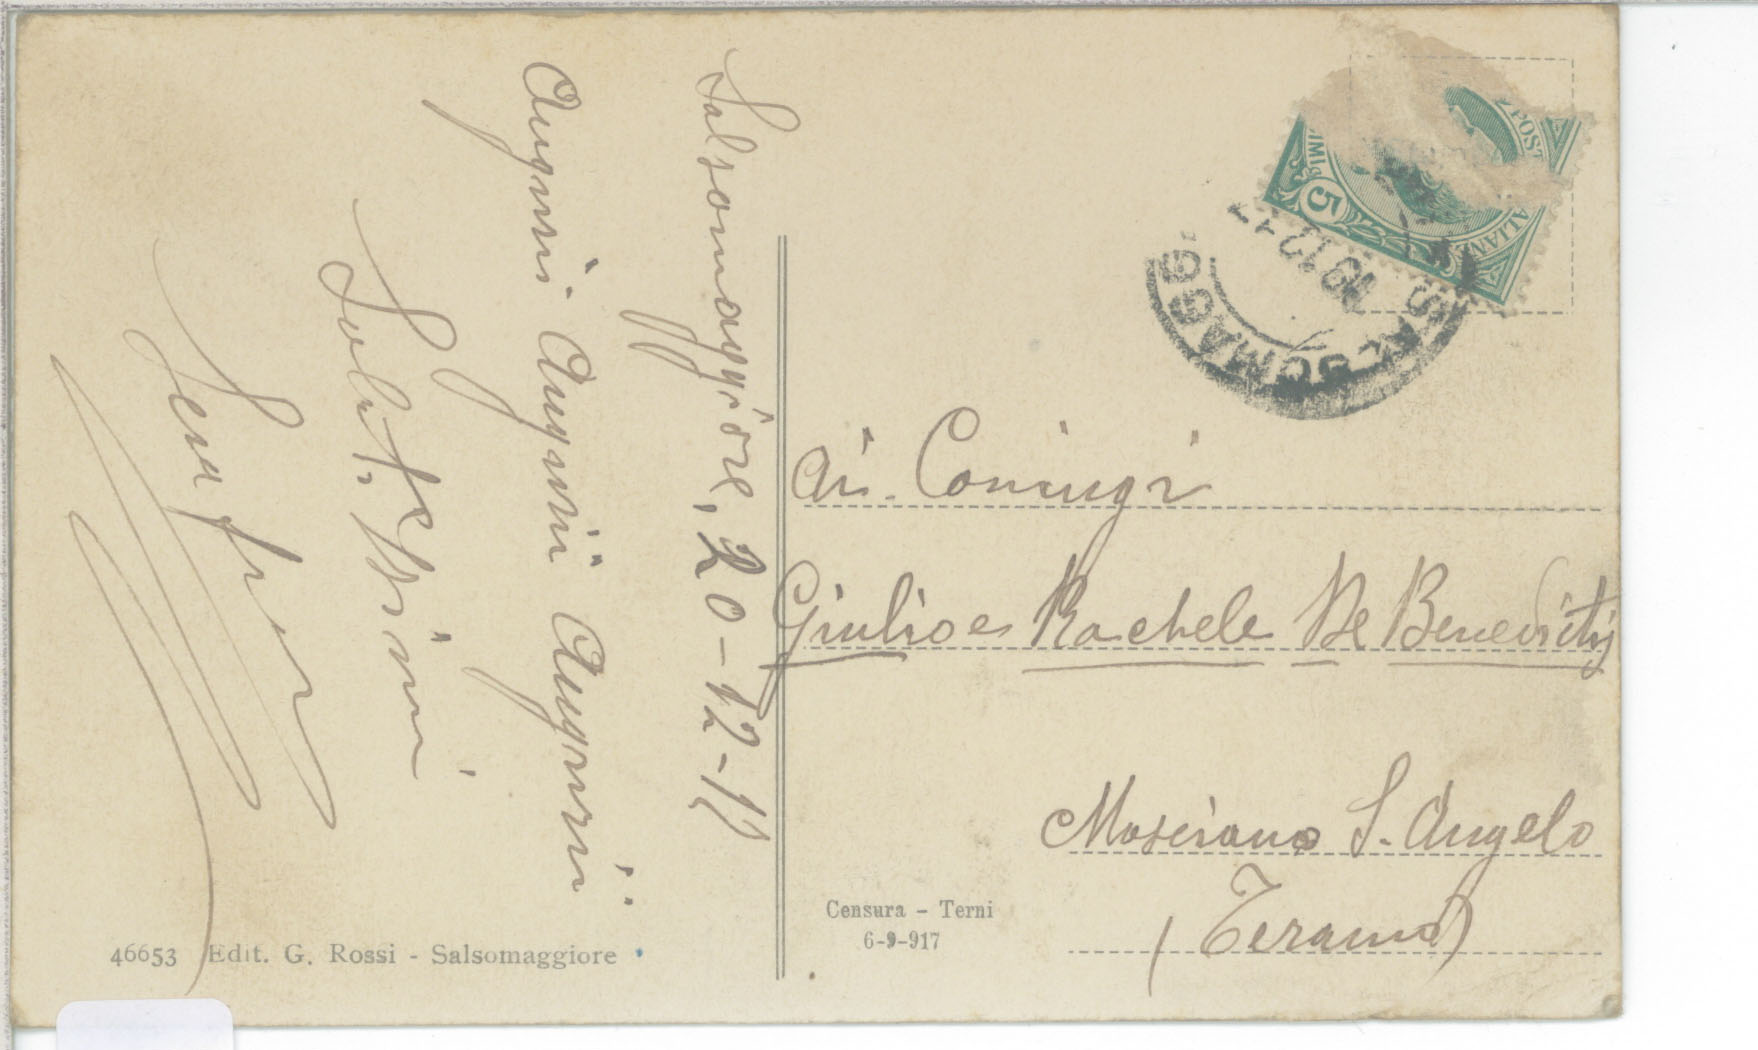 Salsomaggiore, 20-12-17
Auguri Auguri Auguri
Ai Coniugi
Giulio e Rachele De Benedictis
Mosciano S. Angelo
(Teramo)
Censura - Terni
6-9-917
46653 Edit. G. Rossi - Salsomaggiore
SALSOMAGG
19 12 17
POST
ALIANE
5